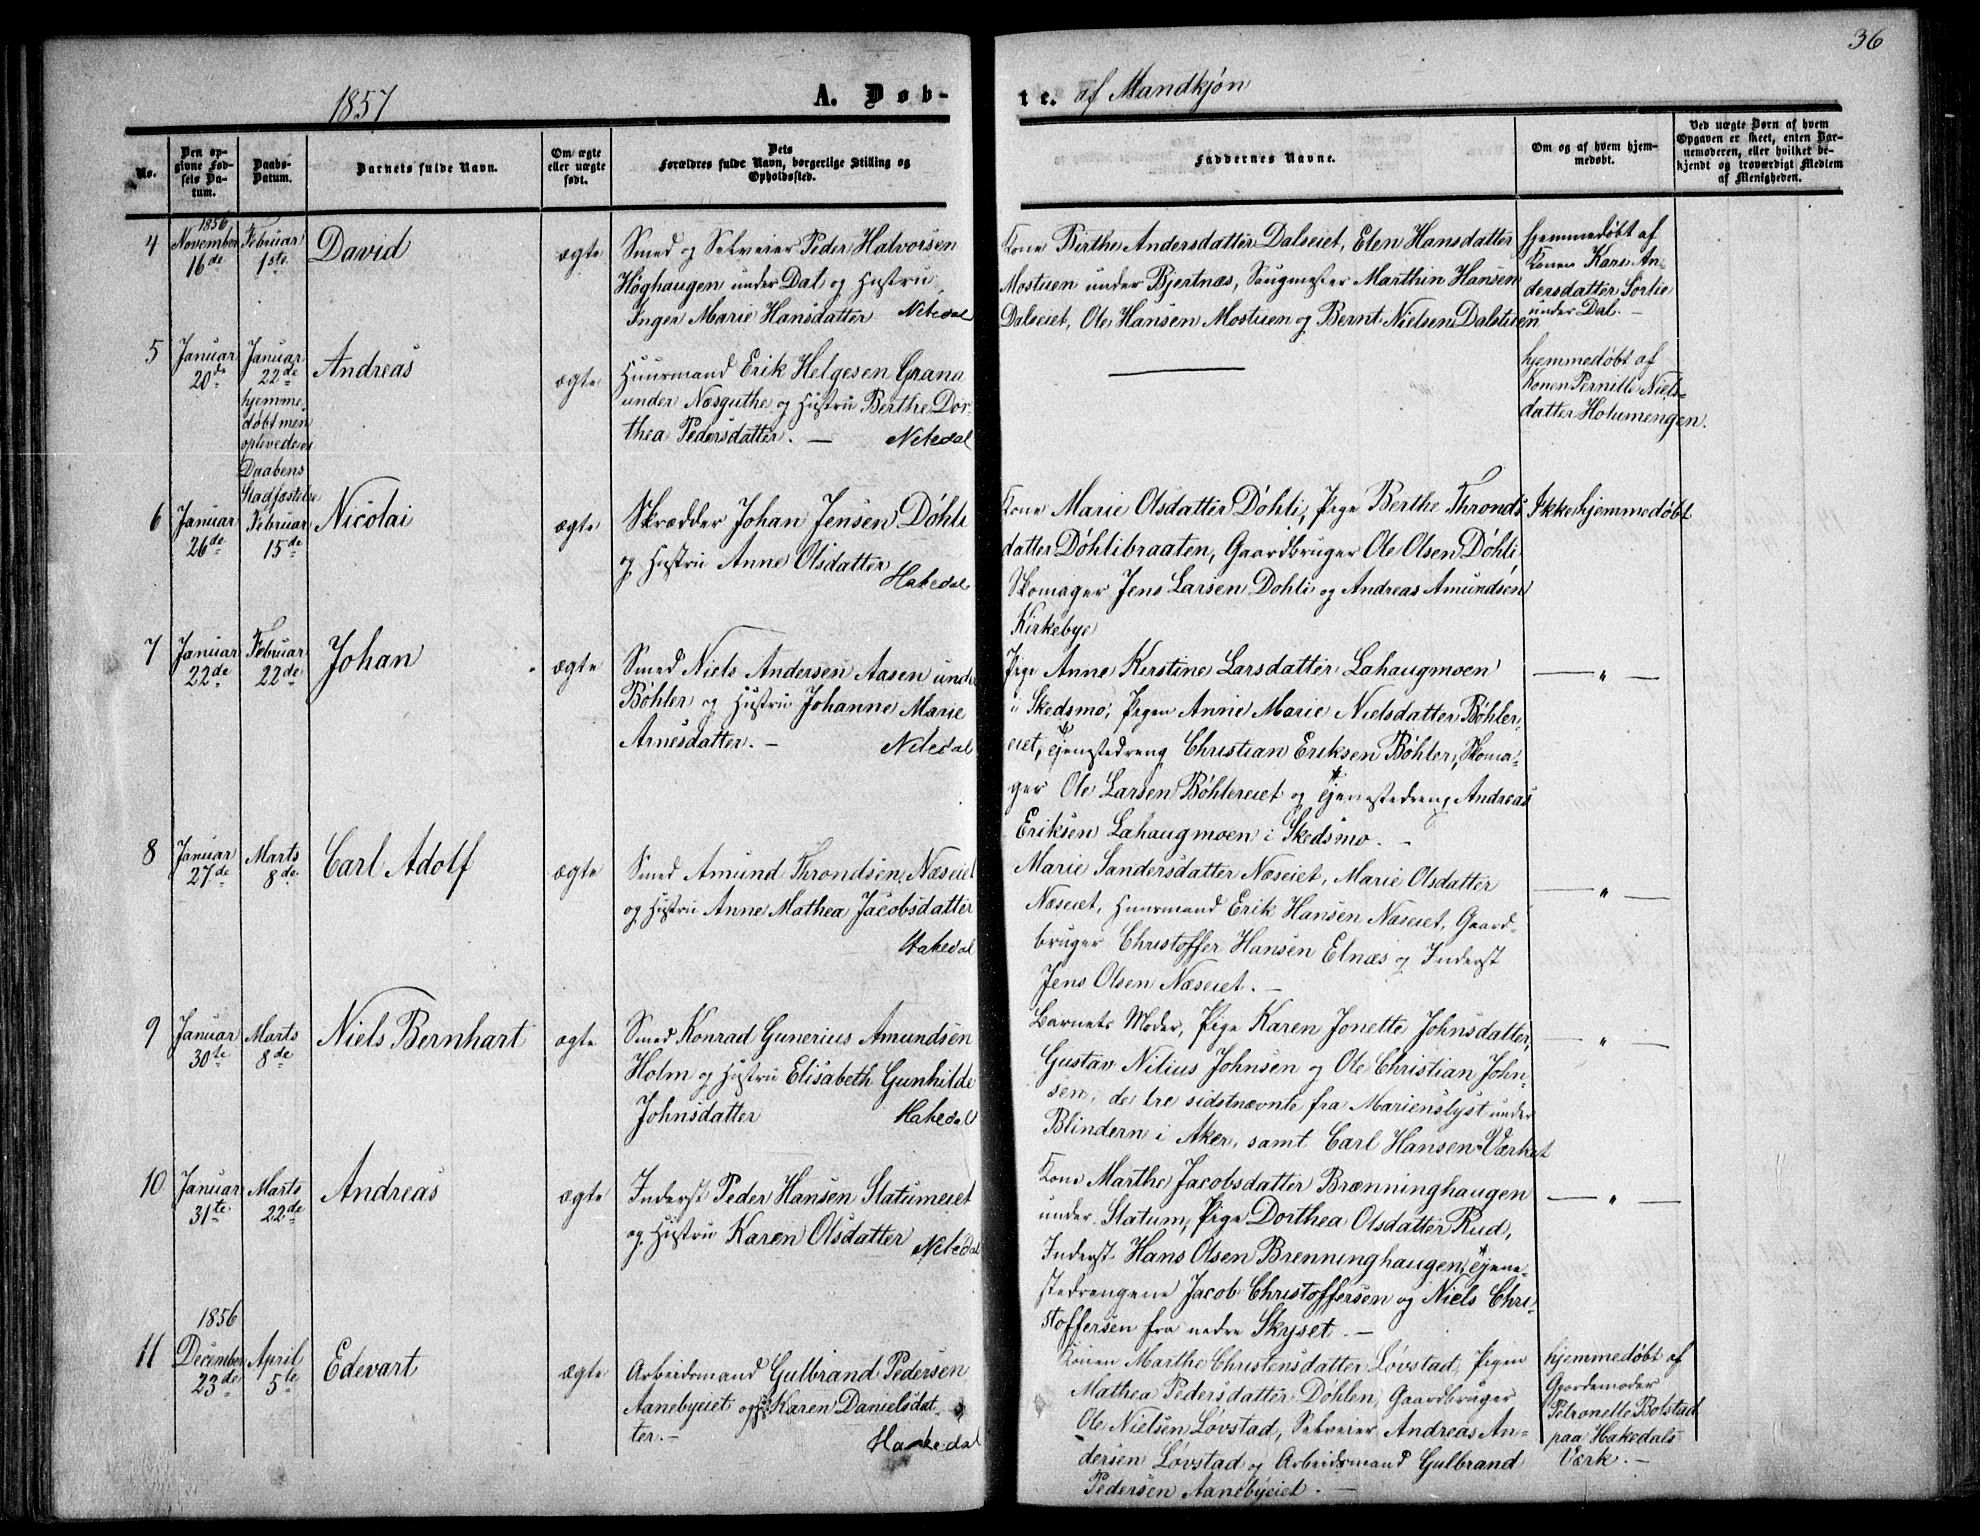 36
1857
A. Døb-
te. af Mandkjøn
No.
Den op-
givne Fød-
sels Da-
tum.
Daabs-
Datum.
Barnets fulde Navn.
Om ægte
eller uægte
født.
Dets
Forældres fulde Navn, borgerlige Stilling og
Opholdssted.
Faddernes Navne.
Om og af hvem hjem-
medøbt.
Ved uægte Børn af hvem
Opgaven er skeet, enten Bar-
nemoderen, eller hvilket be-
kjendt og troværdigt Medlem
af Menigheden.
4
1856
November
16de
Februar
1ste
David
ægte
Smed og Selveier Peder Halvorsen
Høghaugen under Dal og Hustru
Inger Marie Hansdatter Nitedal
Kone Birthe Andersdatter Dalseiet, Elen Hansdatter
Mostuen under Bjertnæs, Saugmester Marthin Hansen
Dalseiet, Ole Hansen Mostuen og Bernt Nielsen Dalstuen
hjemmedøbt af
Konen Kari An-
dersdatter Sørlie
under Dal. -
5
Januar
20de
Januar
22de
hjemme-
døbt men
oplevede ei
Daabens
Stadfæstelse
Andreas
ægte
Huusmand Erik Helgesen Grana
under Næsguthe og Hustru Berthe Dor-
thea Pedersdatter. - Nitedal
hjemmedøbt af
Konen Pernille Niels-
datter Holumengen.
6
Januar
26de
Februar
15de
Nicolai
ægte
Skrædder Johan Jensen Døhli
og Hustru Anne Olsdatter
Hakedal
Kone Marie Olsdatter Døhli, Pige Berthe Thronds-
datter Døhlibraaten, Gaardbruger Ole Olsen Døhli
Skomager Jens Larsen Døhli og Andreas Amundsen
Kirkebye
Ikke hjemmedøbt
7
Januar
22de
Februar
22de
Johan
ægte
Smed Niels Andersen Aasen under
Bøhler og Hustru Johanne Marie
Arnesdatter. - Nitedal
Pige Anne Kirstine Larsdatter Lahaugmoen
i Skedsmo, Pigen Anne Marie Nielsdatter Bøhler-
eiet, Tjenstedreng Christian Eriksen Bøhler, Skoma-
ger Ole Larsen Bøhlereiet og Tjenstedreng Andreas
Eriksen Lahaugmoen i Skedsmo. -
— " —
8
Januar
27de
Marts
8de
Carl Adolf
ægte
Smed Amund Throndsen Næseiet
og Hustru Anne Mathea Jacobsdatter
Hakedal
Marie Sandersdatter Næseiet, Marie Olsdatter
Næseiet, Huusmand Erik Hansen Næseiet, Gaard-
bruger Christoffer Hansen Elnæs og Inderst
Jens Olsen Næseiet. -
— " —
9
Januar
30te
Marts
8de
Niels Bernhart
ægte
Smed Konrad Gunerius Amundsen
Holm og Hustru Elisabeth Gunhilde
Johnsdatter Hakedal
Barnets Moder, Pige Karen Jonette Johnsdatter,
Gustav Nilius Johnsen og Ole Christian John-
sen, de tre sidstnævnte fra Marienslyst under
Blindern i Aker, samt Carl Hansen Værket
— " —
10
Januar
31te
Marts
22de
Andreas
ægte
Inderst Peder Hansen Slatumeiet
og Hustru Karen Olsdatter Nitedal
Kone Marthe Jacobsdatter Brænninghaugen
under Slatum, Pige Dorthea Olsdatter Rud,
Inderst Hans Olsen Brenninghaugen, Tjene-
stedrengene Jacob Christoffersen og Niels Chri-
stoffersen fra nedre Skyset. -
— " —
11
1856
December
23de
April
5te
Edevart
ægte
Arbeidsmand Gulbrand Pedersen
Aanebyeiet og Hst Karen Danielsdat-
ter. - Hakedal
Konen Marthe Christensdatter Løvstad, Pigen
Mathea Pedersdatter Døhlen, Gaardbruger
Ole Nielsen Løvstad, Selveier Andreas An-
dersen Løvstad og Arbeidsmand Gulbrand
Pedersen Aanebyeiet. -
hjemmedøbt af
Gjordemoder
Petronelle Bolstad
paa Hakedals
Værk. -